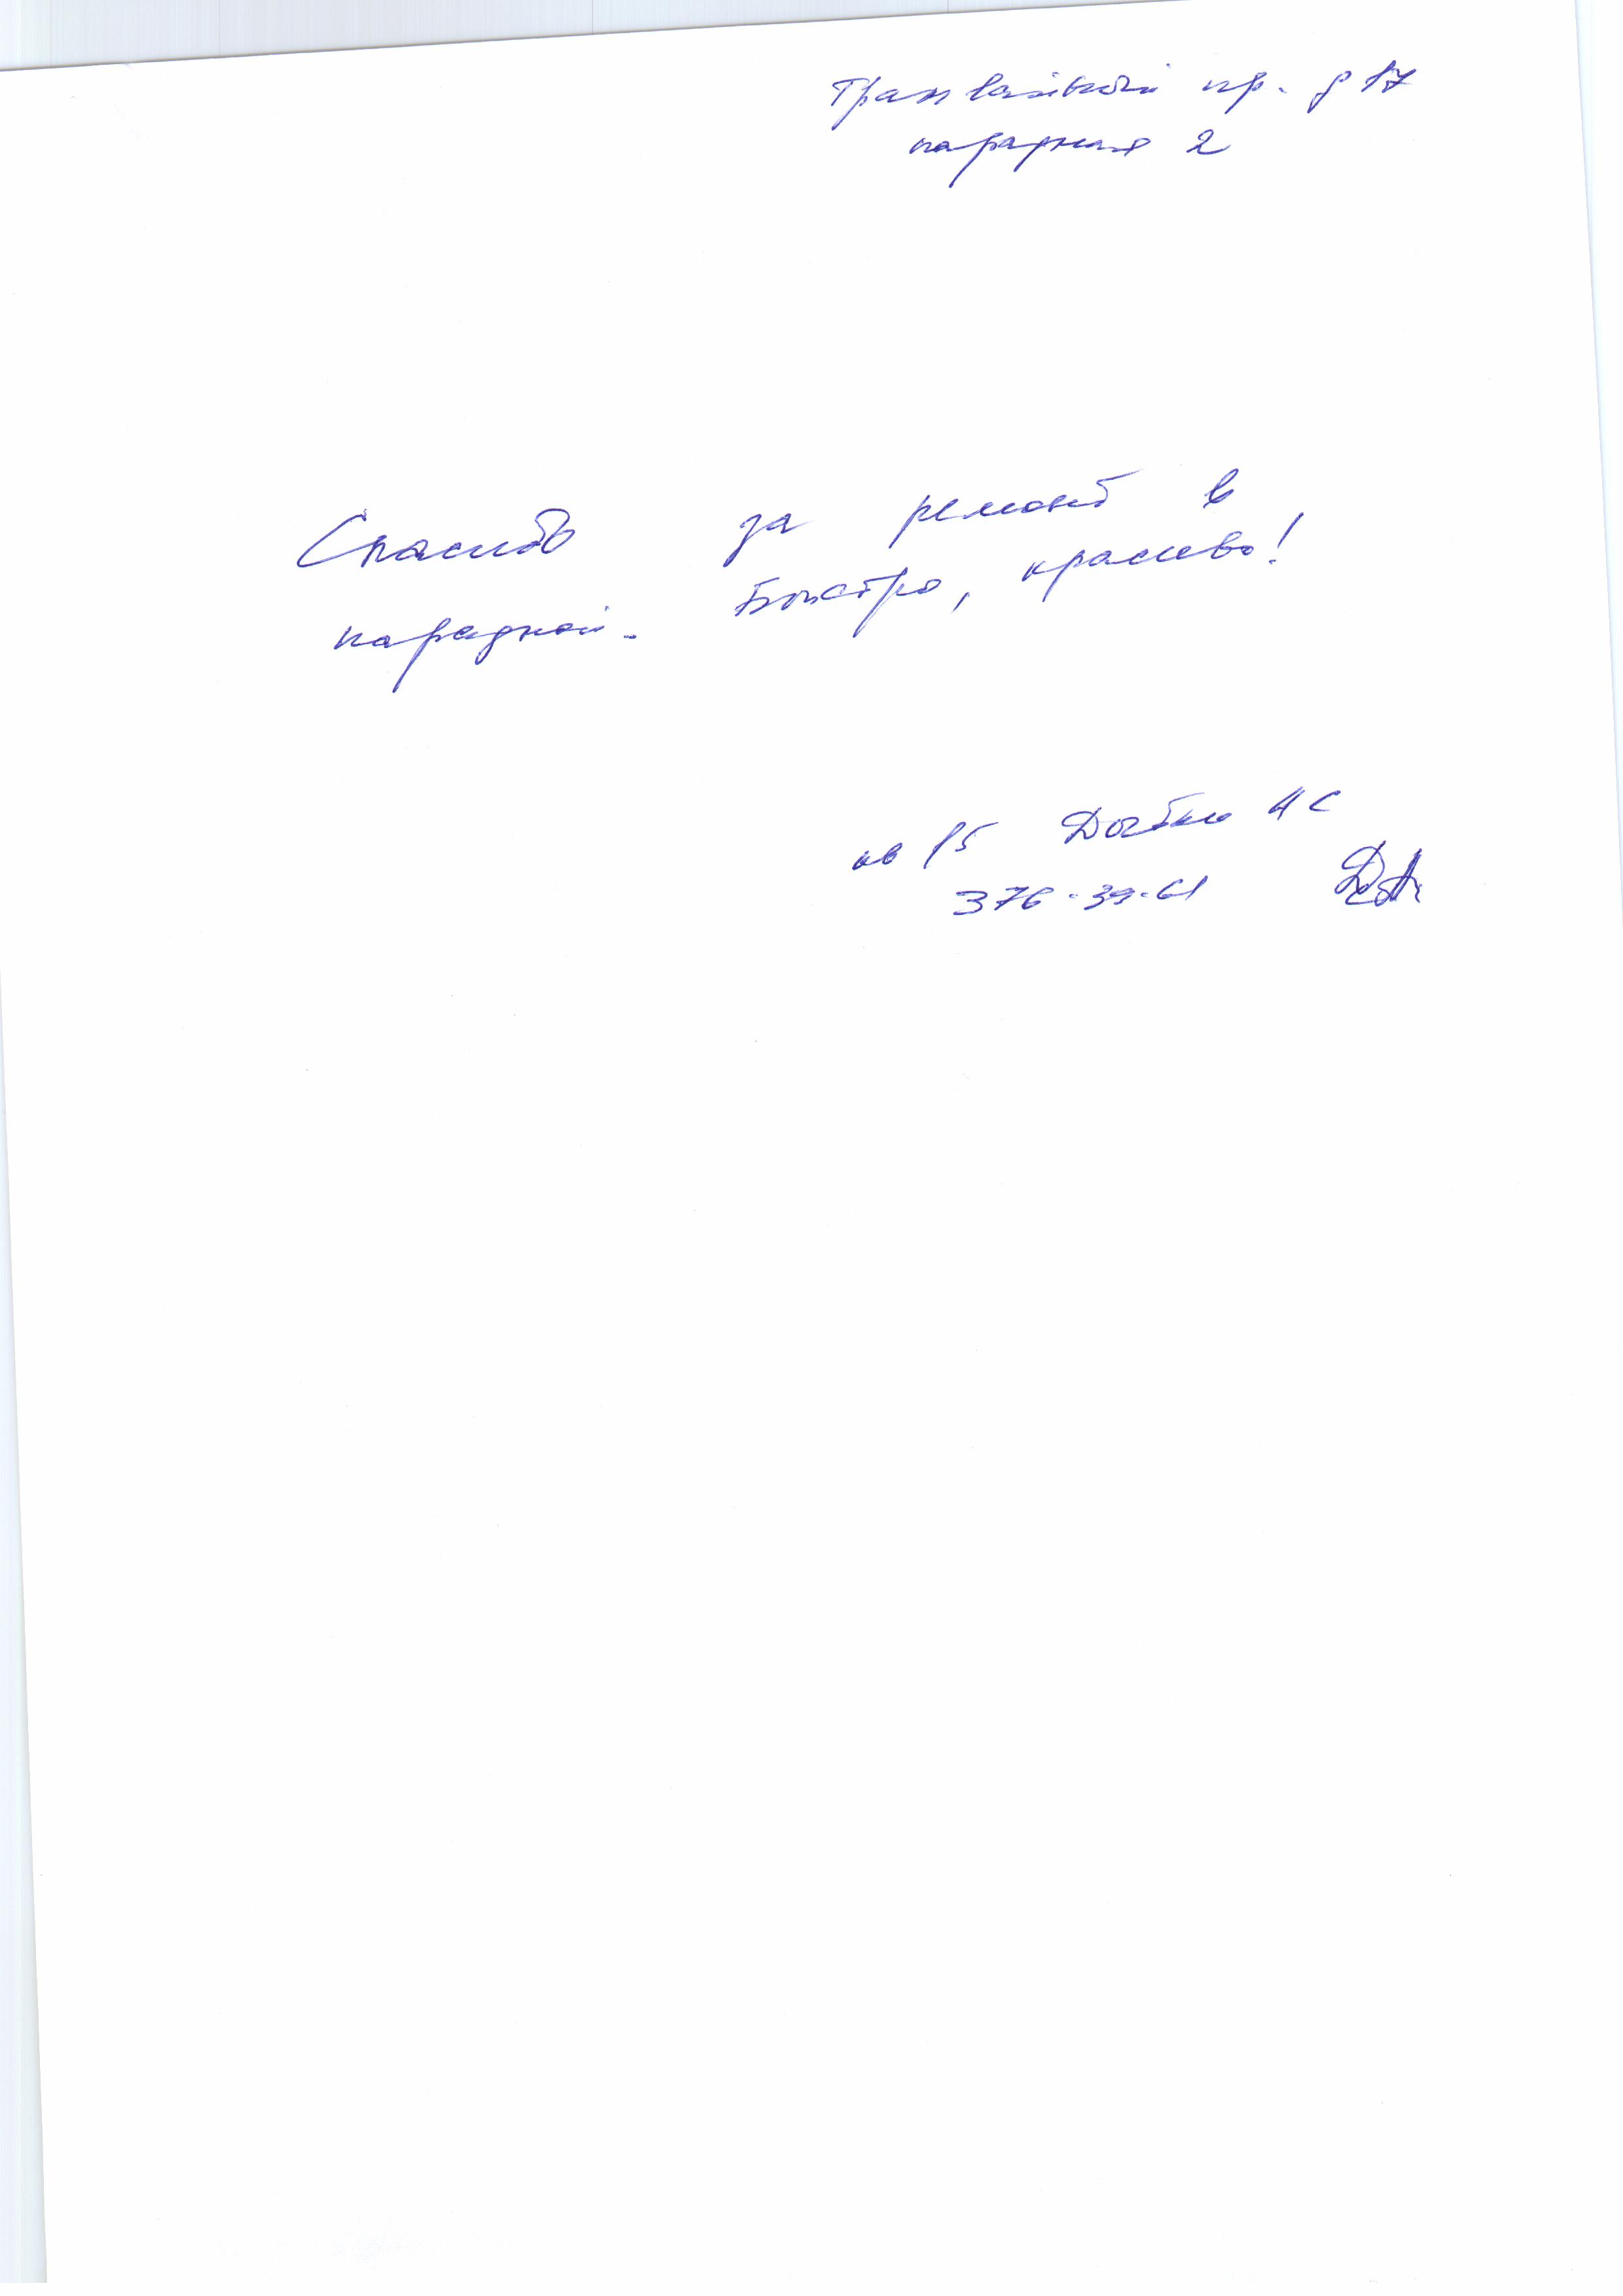 Трамвайный пр. д 17
парадная 2
Спасибо за ремонт в
парадной. Быстро, красиво!
кв 15 А С
376-39-61